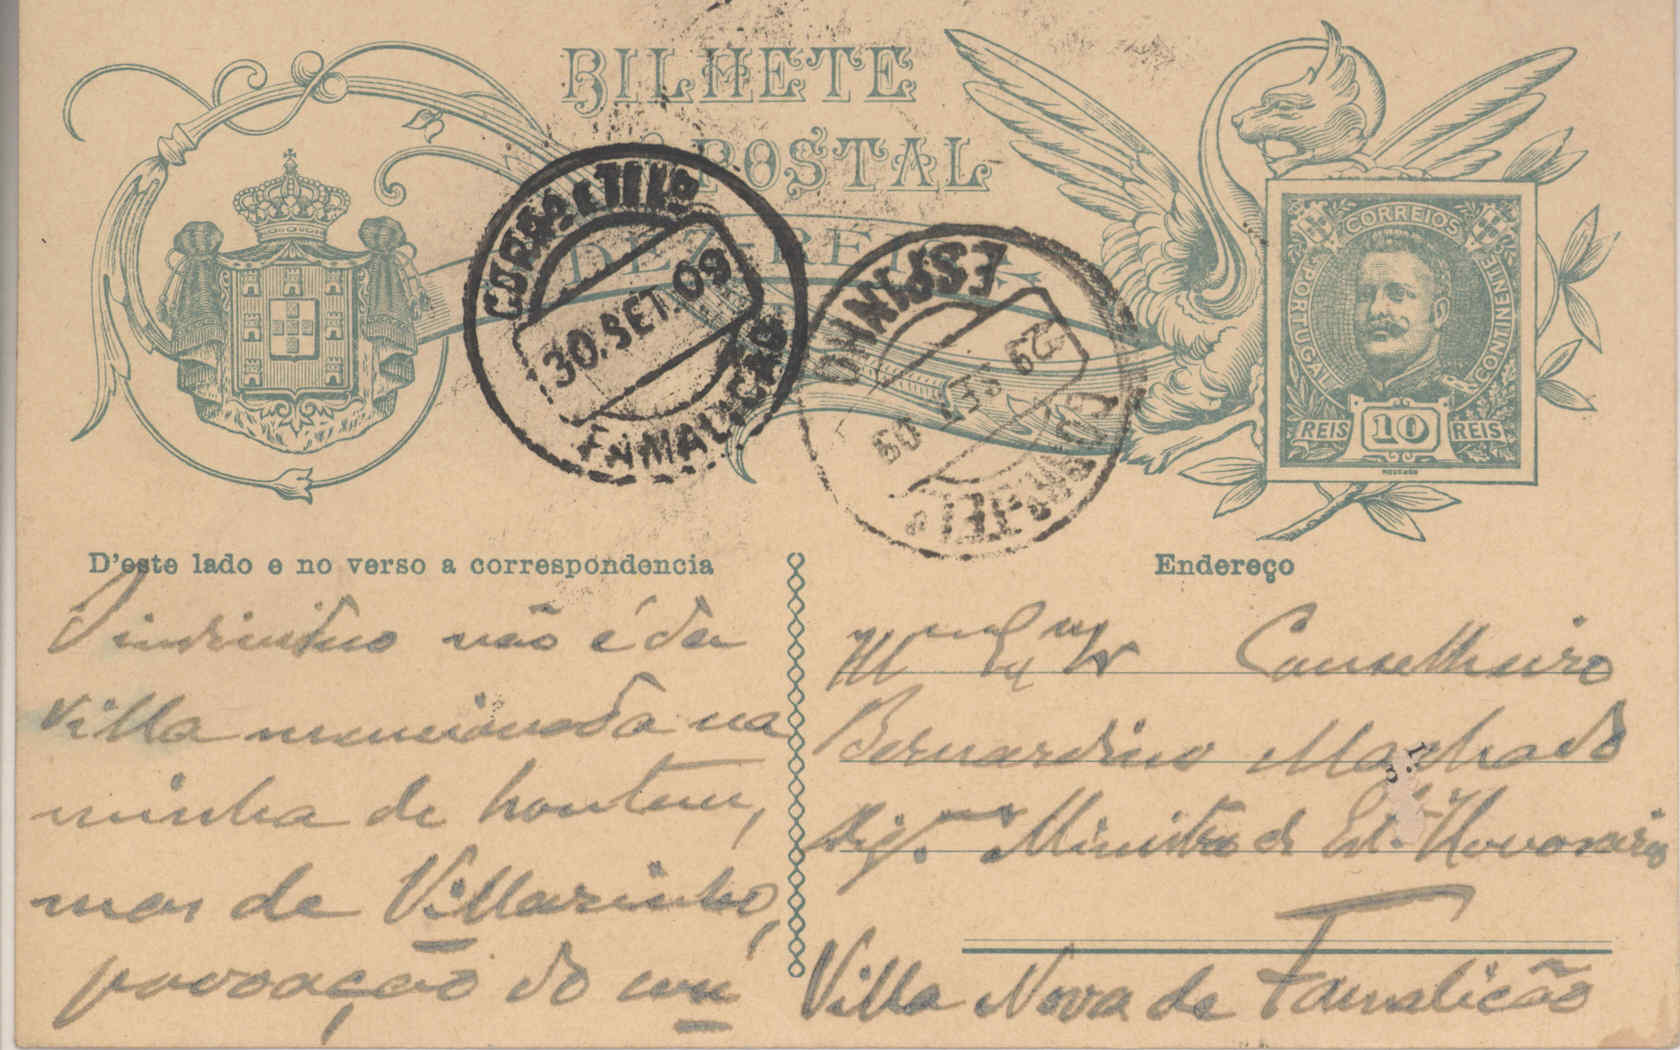 BILHETE
POSTAL
DEZ RÉIS
CORREIOS
PORTUGAL
CONTINENTE
REIS 10 REIS
MOUCHON
CORREIO E TELEGº
30.SET.09
FAMALICÃO
ESPINHO
29 SET 09
D'este lado e no verso a correspondencia
não é da
villa mencionada na
minha de hontem,
mas de Villarinho,
povoação do con
Endereço
Illmo Exmo Sr Conselheiro
Bernardino Machado
Digmo Ministro d' Est.
Villa Nova de Famalicão